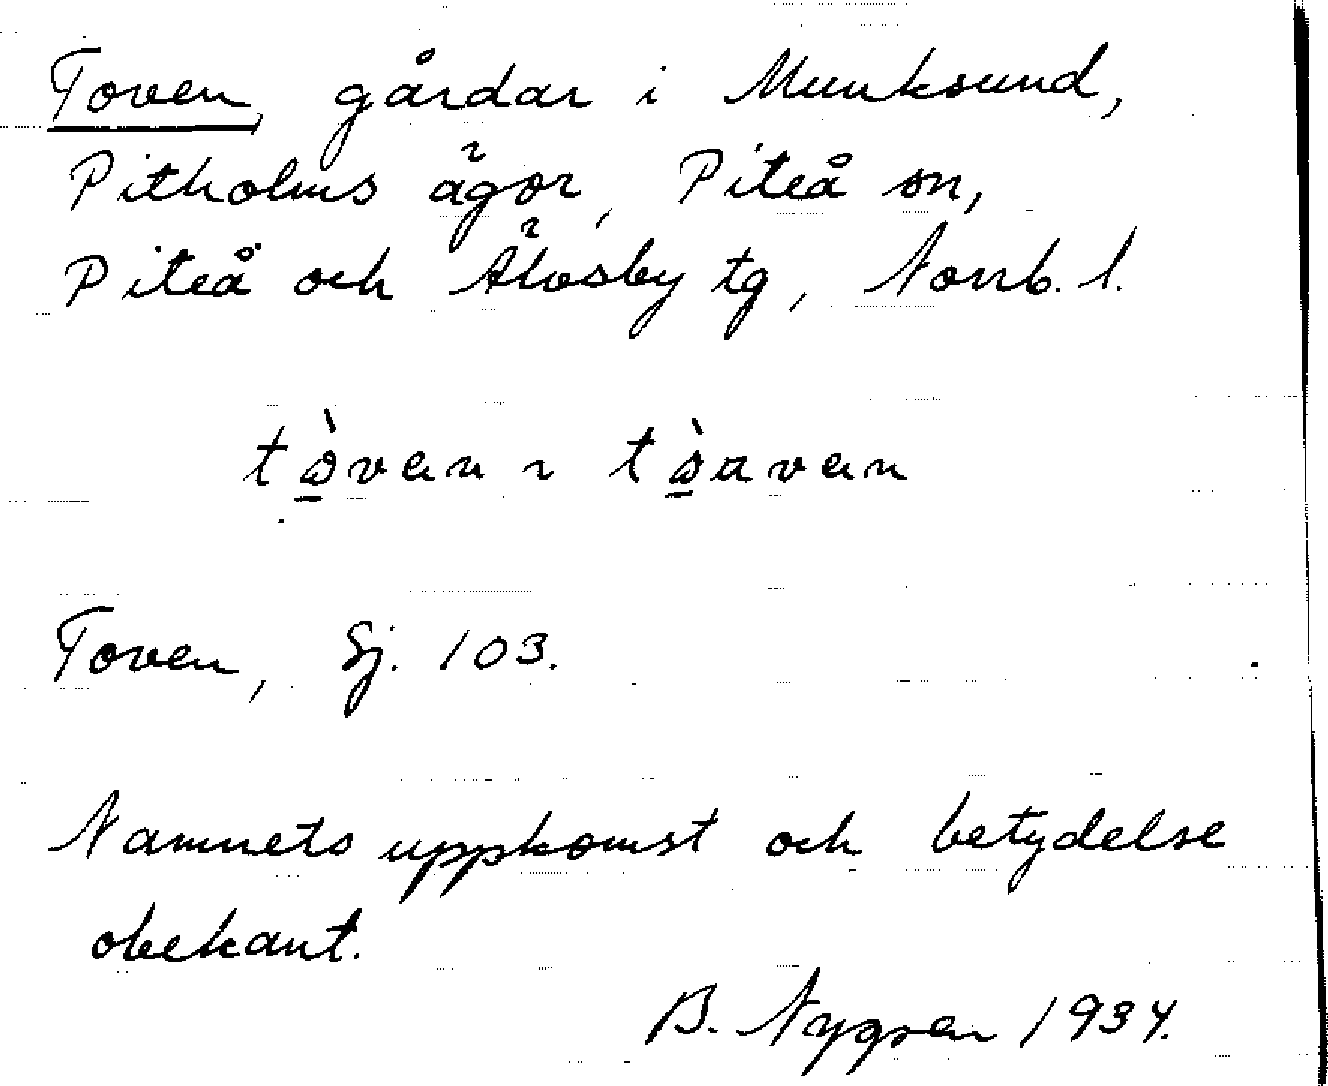 Toven, gårdar i Munksund,
Pitholms ägor, Piteå sn,
Piteå och Älvsby tg, Norrb. l.
tòven ~ tòaven
Toven, Sj. 103.
Namnets uppkomst och betydelse
obekant.
B. Nygren 1934.